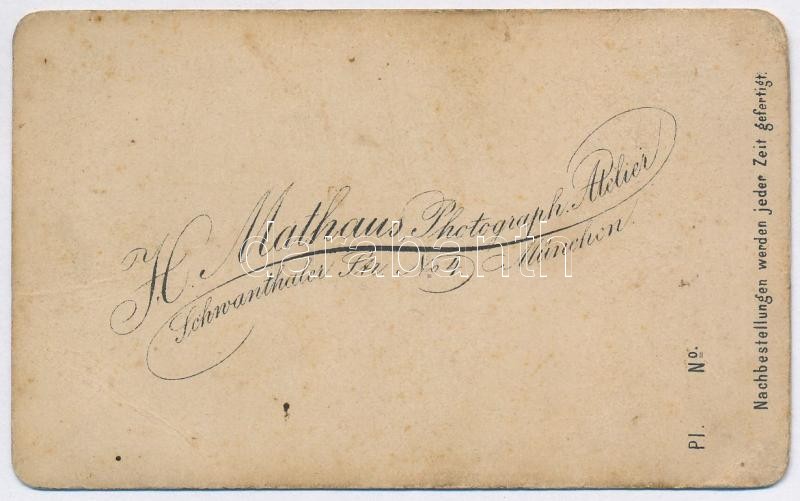 H. Mathaus, Photograph. Atelier
Schwanthaler Str. No 4, München.
Pl. No.
Nachbestellungen werden jeder Zeit gefertigt.
darabanth